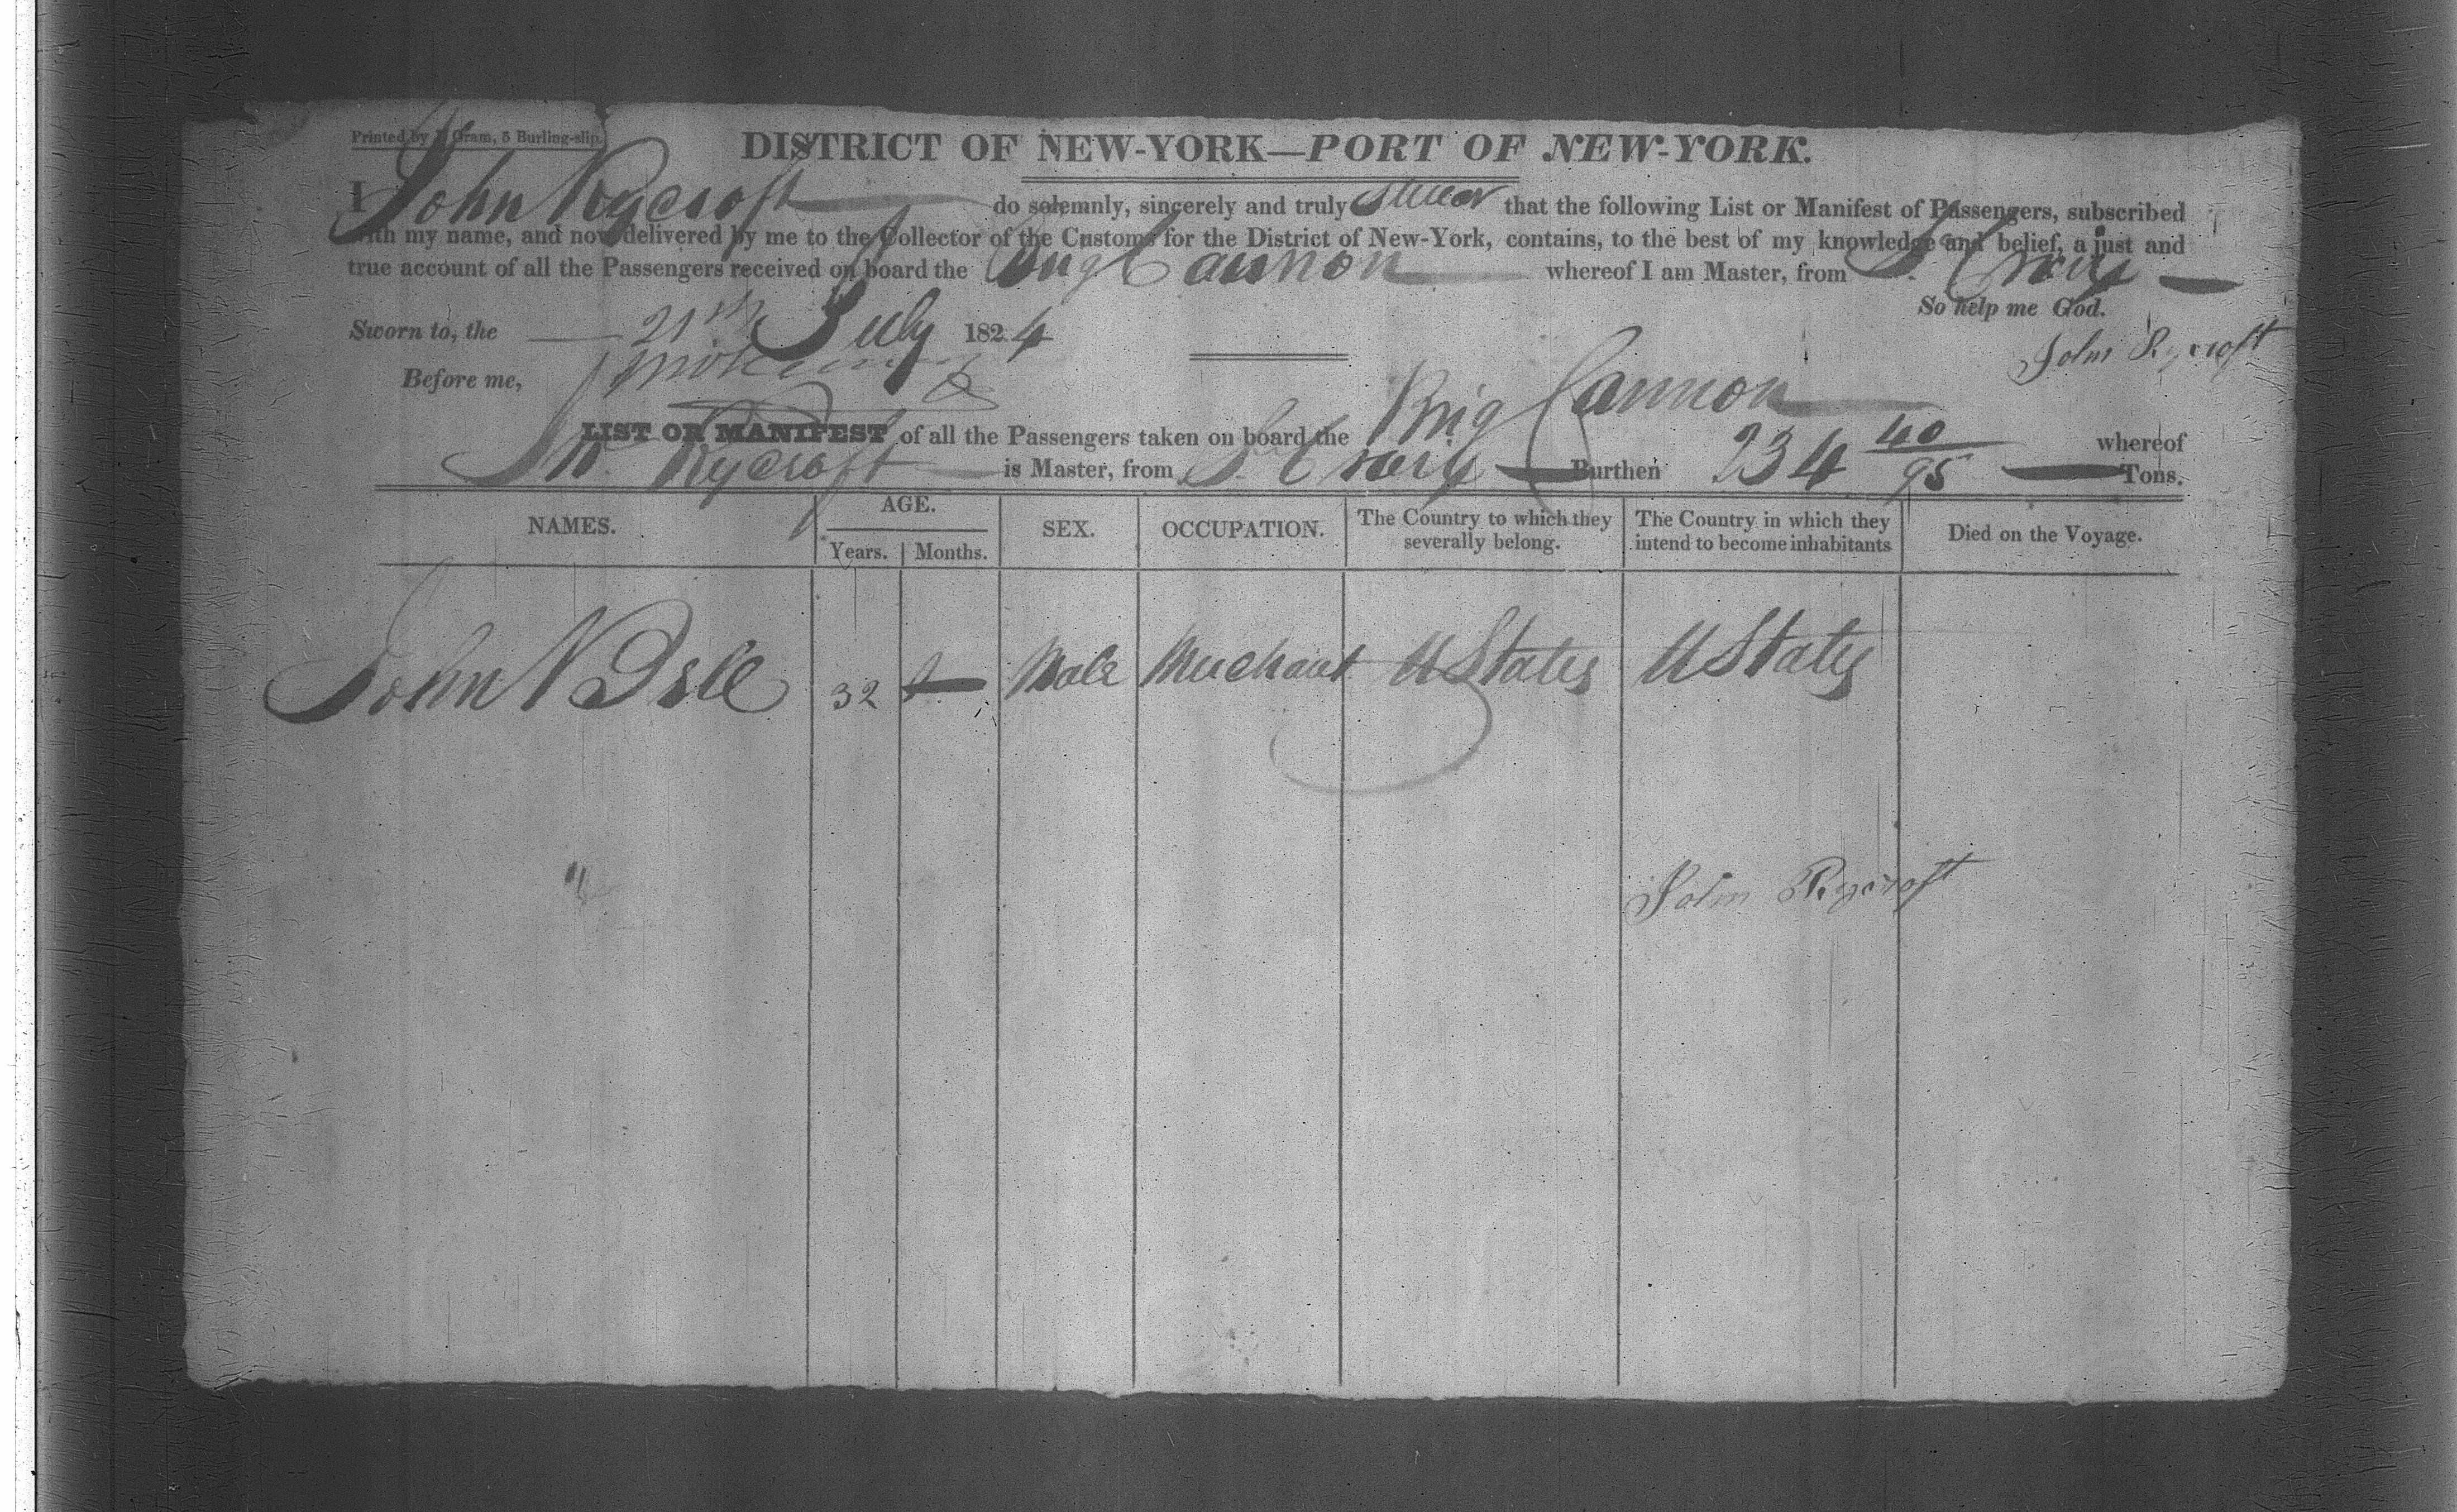 Printed by Gram, 5 Burling-slip.
DISTRICT OF NEW-YORK—PORT OF NEW-YORK.
I John Rycroft do solemnly, sincerely and truly swear that the following List or Manifest of Passengers, subscribed
with my name, and now delivered by me to the Collector of the Customs for the District of New-York, contains, to the best of my knowledge and belief, a just and
true account of all the Passengers received on board the Brig Cannon whereof I am Master, from St Croix
So help me God.
Sworn to, the 21st July 1824
John Rycroft
Before me,
LIST OR MANIFEST of all the Passengers taken on board the Brig Cannon whereof
Jn Rycroft is Master, from St Croix Burthen 234 40/95 Tons.
NAMES. AGE. Years. Months. SEX. OCCUPATION. The Country to which they severally belong. The Country in which they intend to become inhabitants Died on the Voyage.
John N 32 Male Merchant U States U States
John Rycroft